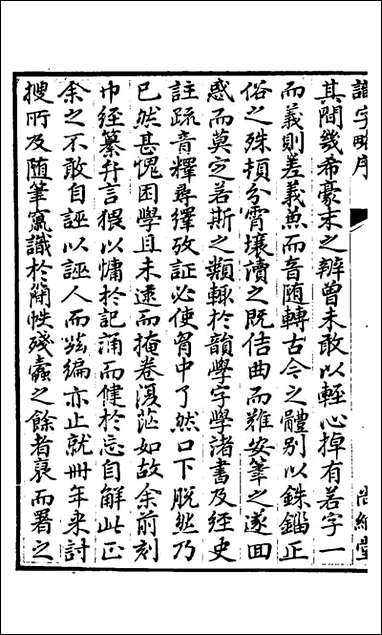 其間幾希豪末之辨曾未敢以輊心掉有若字一
而義則差義兼而音随轉古今之體別以銖錙正
俗之殊頓分霄壤讀之既佶曲而難安筆之遂回
惑而莫定若斯之類輙於韻學字學諸書及経史
註疏音釋尋繹攷証必使胷中了然口下脫然乃
已然甚愧困學且未逮而掩卷復茫如故余前刻
巾經纂弁言猥以慵於記誦而健於忘自解此正
余之不敢自誣以誣人而兹編亦止就卅年来討
搜所及随筆彚識於簡帙殘蠹之餘者裒而署之